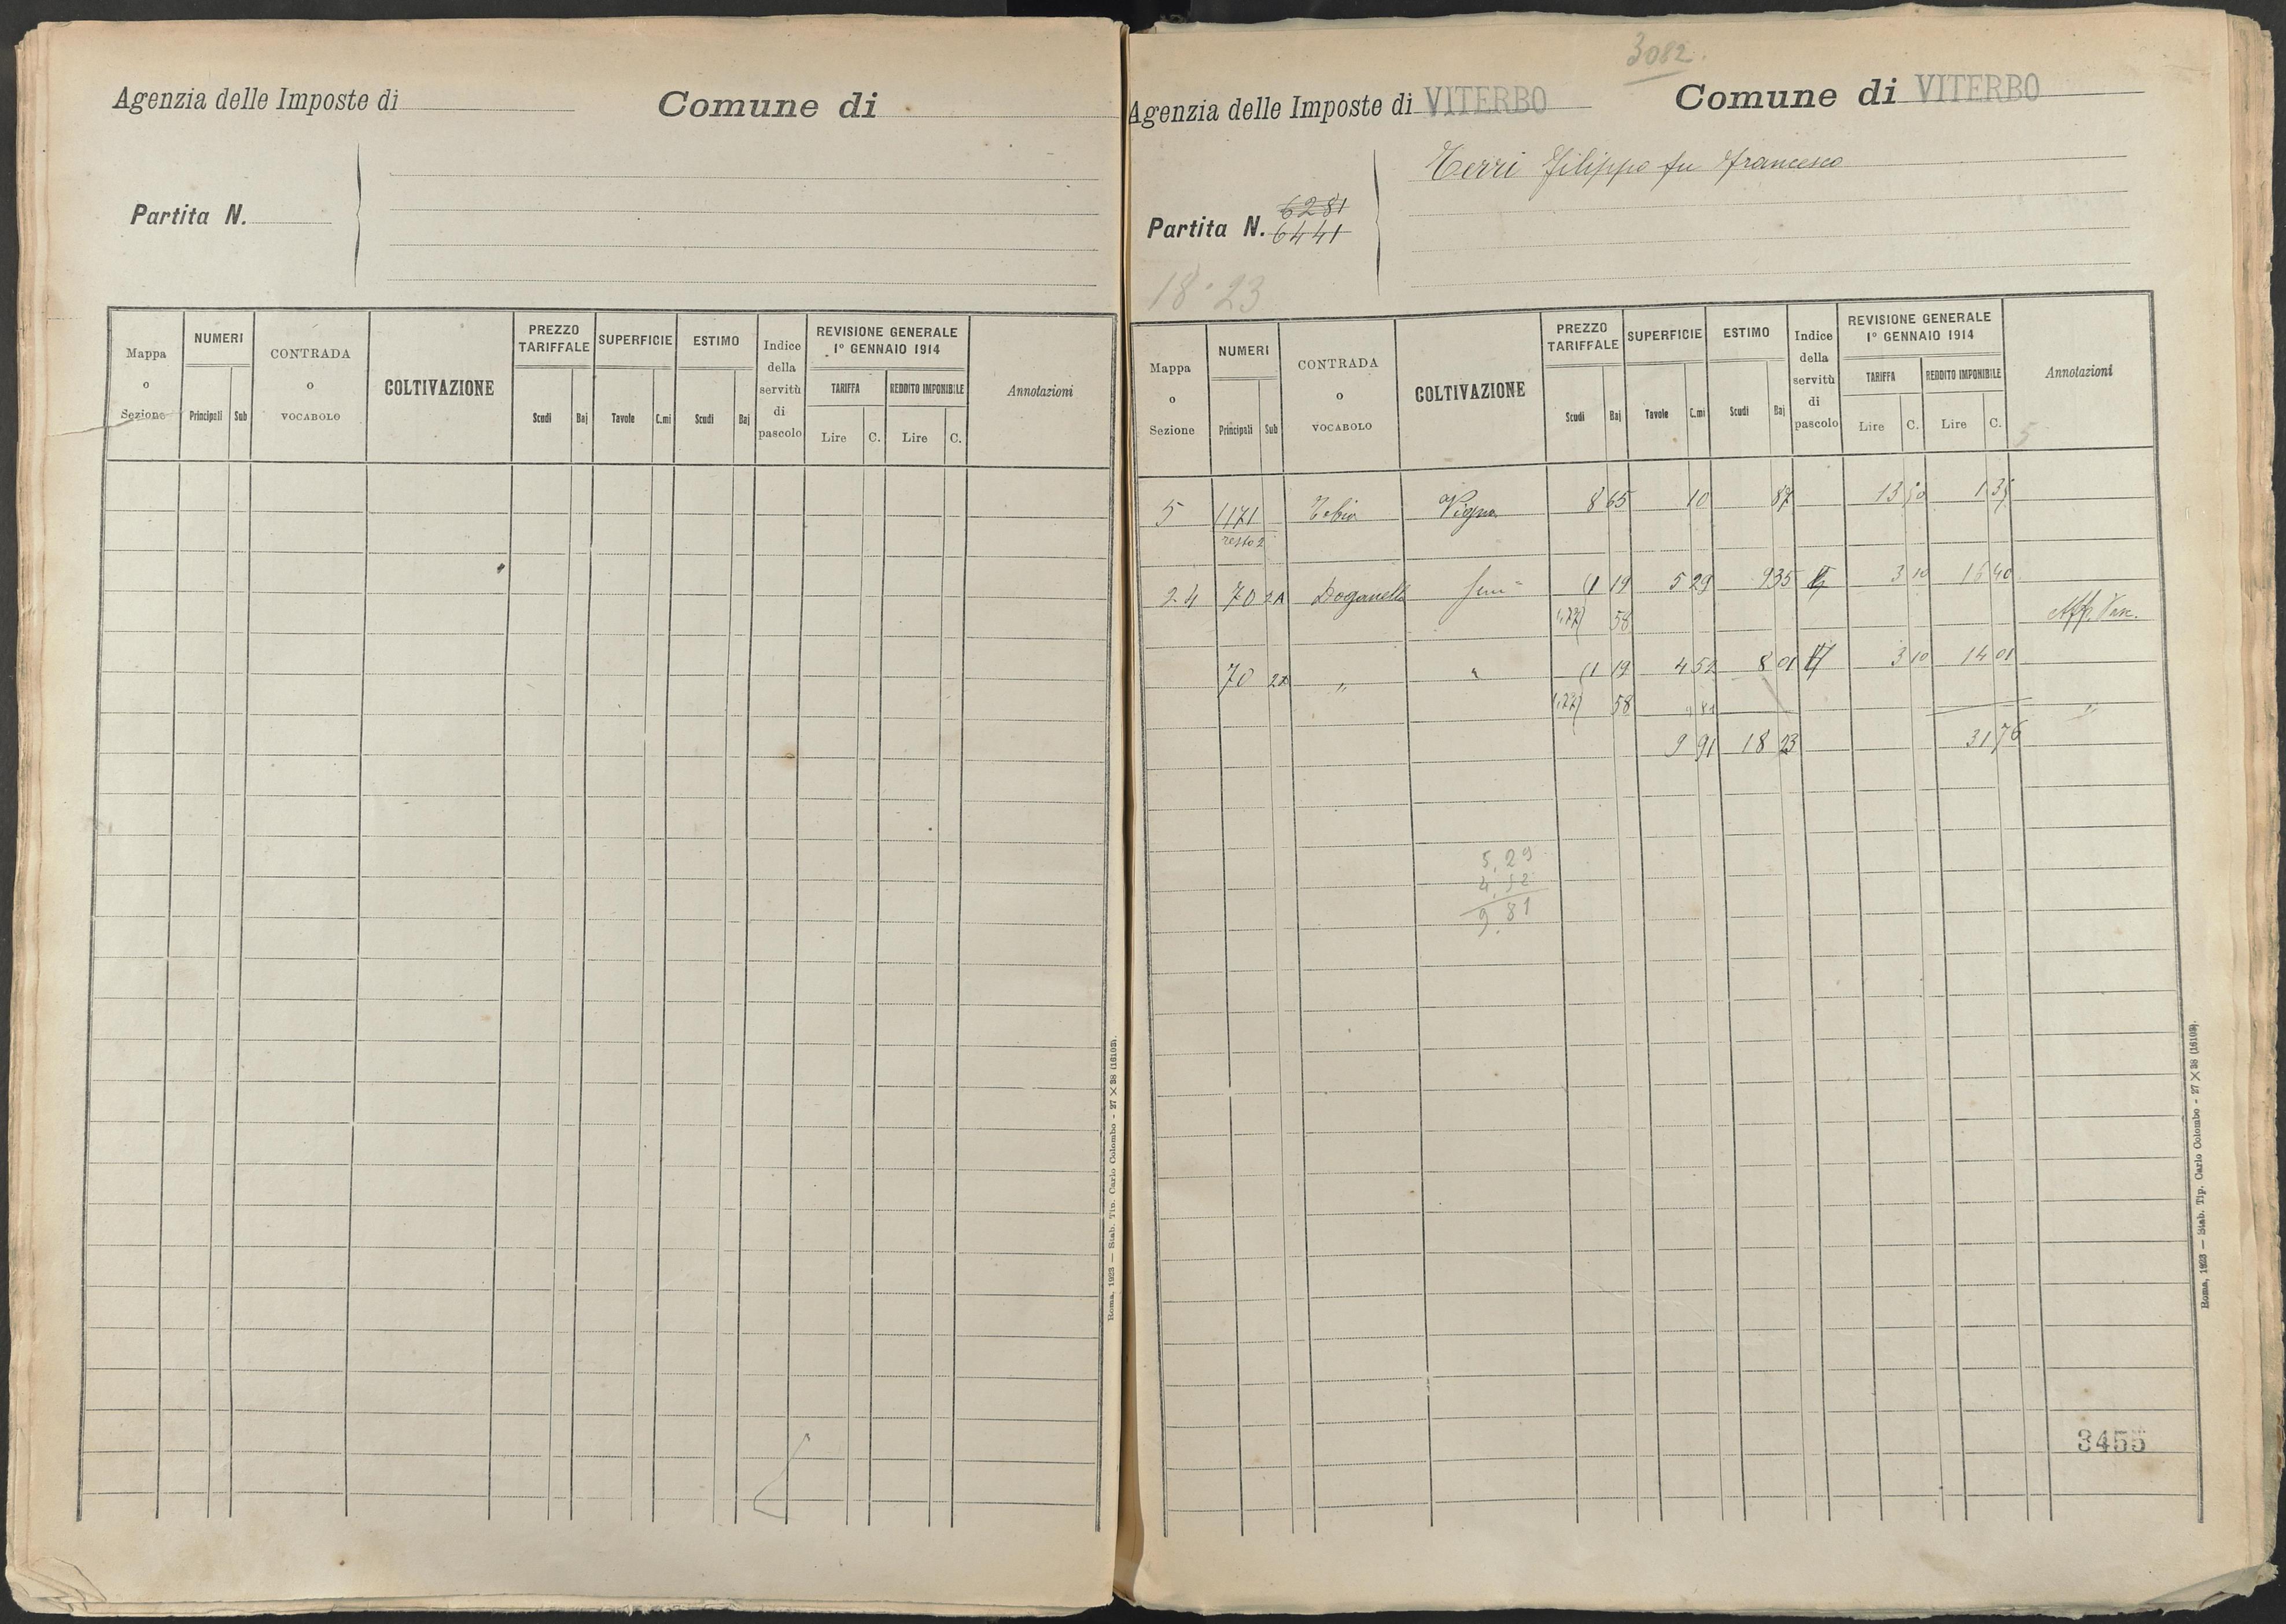 Agenzia delle Imposte di
Comune di
Partita N.
Mappa o Sezione
NUMERI
Principali Sub
CONTRADA o VOCABOLO
COLTIVAZIONE
PREZZO TARIFFALE
Scudi Baj
SUPERFICIE
Tavole C.mi
ESTIMO
Scudi Baj
Indice della servitù di pascolo
REVISIONE GENERALE
1° GENNAIO 1914
TARIFFA
Lire C.
REDDITO IMPONIBILE
Lire C.
Annotazioni
Roma, 1923 — Stab. Tip. Carlo Colombo - 27 X 38 (16103).
3082.
Agenzia delle Imposte di VITERBO
Comune di VITERBO
Terri Filippo fu Francesco
6281
Partita N. 6441
18.23
Mappa o Sezione
NUMERI
Principali Sub
CONTRADA o VOCABOLO
COLTIVAZIONE
PREZZO TARIFFALE
Scudi Baj
SUPERFICIE
Tavole C.mi
ESTIMO
Scudi Baj
Indice della servitù di pascolo
REVISIONE GENERALE
1° GENNAIO 1914
TARIFFA
Lire C.
REDDITO IMPONIBILE
Lire C.
Annotazioni
5
5 1171 Vigna 8 65 10 87 13 50 1 35
resto 2
24 70 2A Doganella 1 19 5 29 9 35 3 10 16 40
1,77 58 Aff.
70 " " 1 19 4 52 8 01 3 10 14 01
1,77 58 9 81 "
9 91 18 23 31 76
5,29
4,52
9,81
3455
Roma, 1923 — Stab. Tip. Carlo Colombo - 27 X 38 (16103).